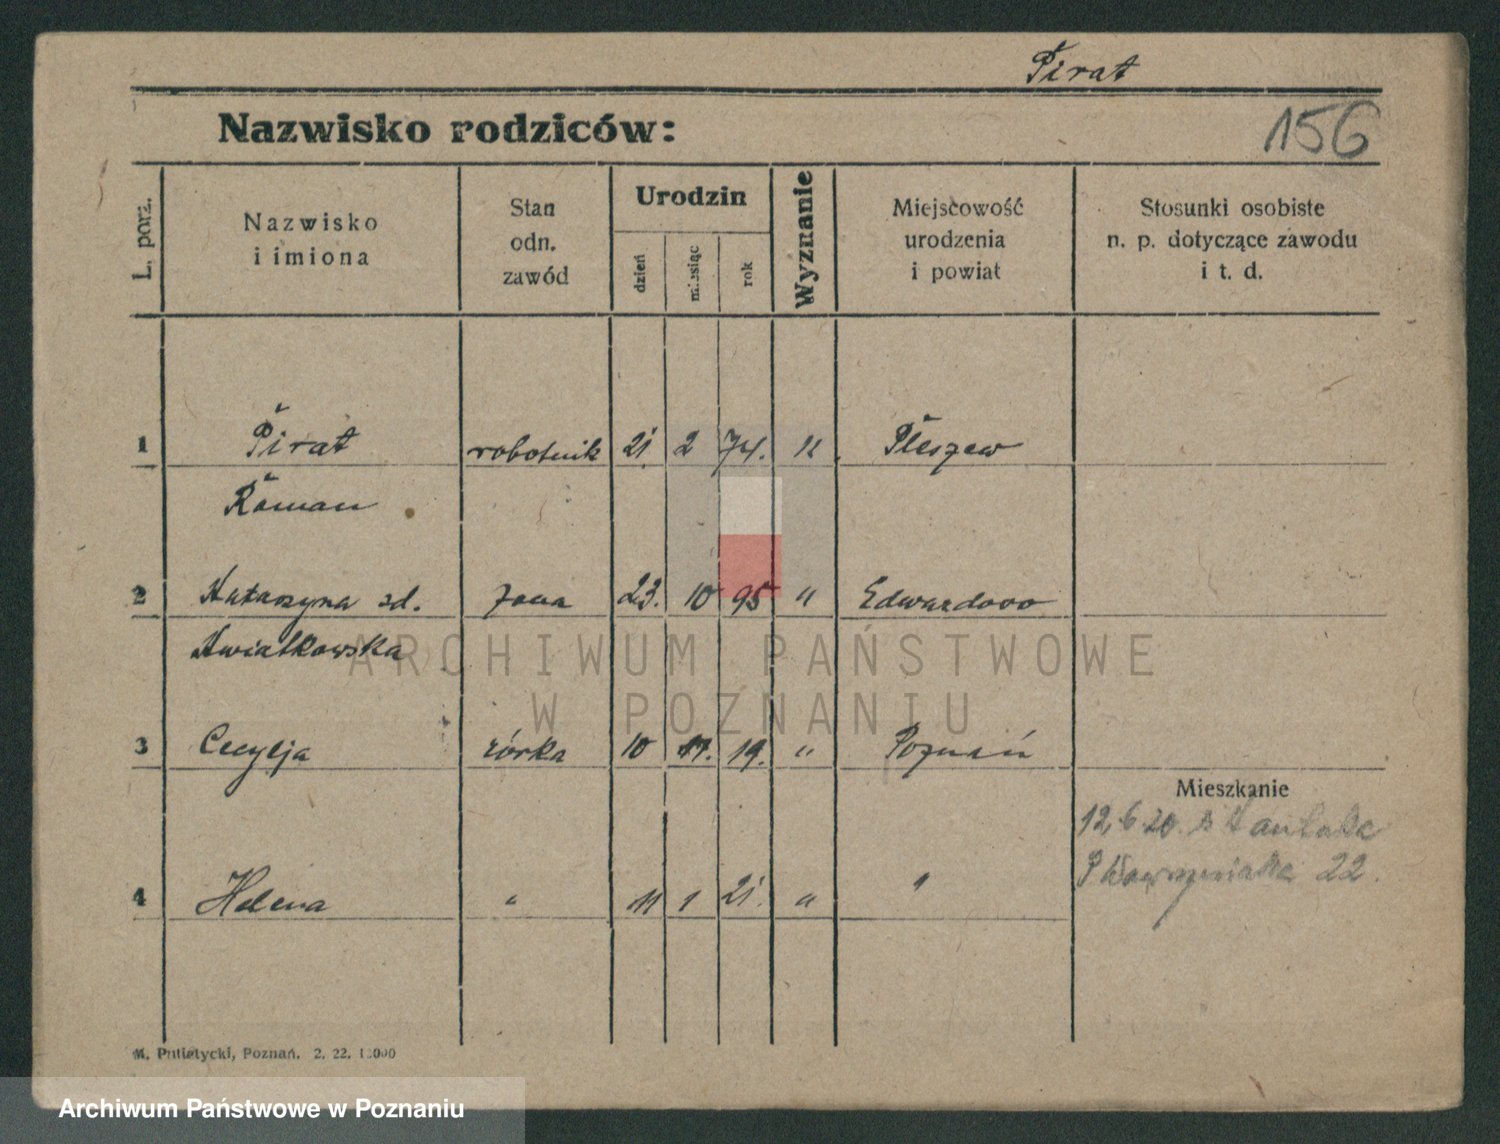 Pirat
Nazwisko rodziców:
156
L. porz.
Nazwisko
i imiona
Stan
odn.
zawód
Urodzin
dzień
miesiąc
rok
Wyznanie
Miejscowość
urodzenia
i powiat
Stosunki osobiste
n. p. dotyczące zawodu
i t. d.
1 Pirat robotnik 21 2 74. Pleszew
Roman
2 Katarzyna zd. żona 23. 10 95 " Edwardowo
Kwiatkowska
3 Cecylja córka 10 11. 19. " Poznań
Mieszkanie
12.6.20.
22.
4 Helena " 11 1 21. " "
M. Putiatycki, Poznań. 2. 22.
ARCHIWUM PAŃSTWOWE
W POZNANIU
Archiwum Państwowe w Poznaniu